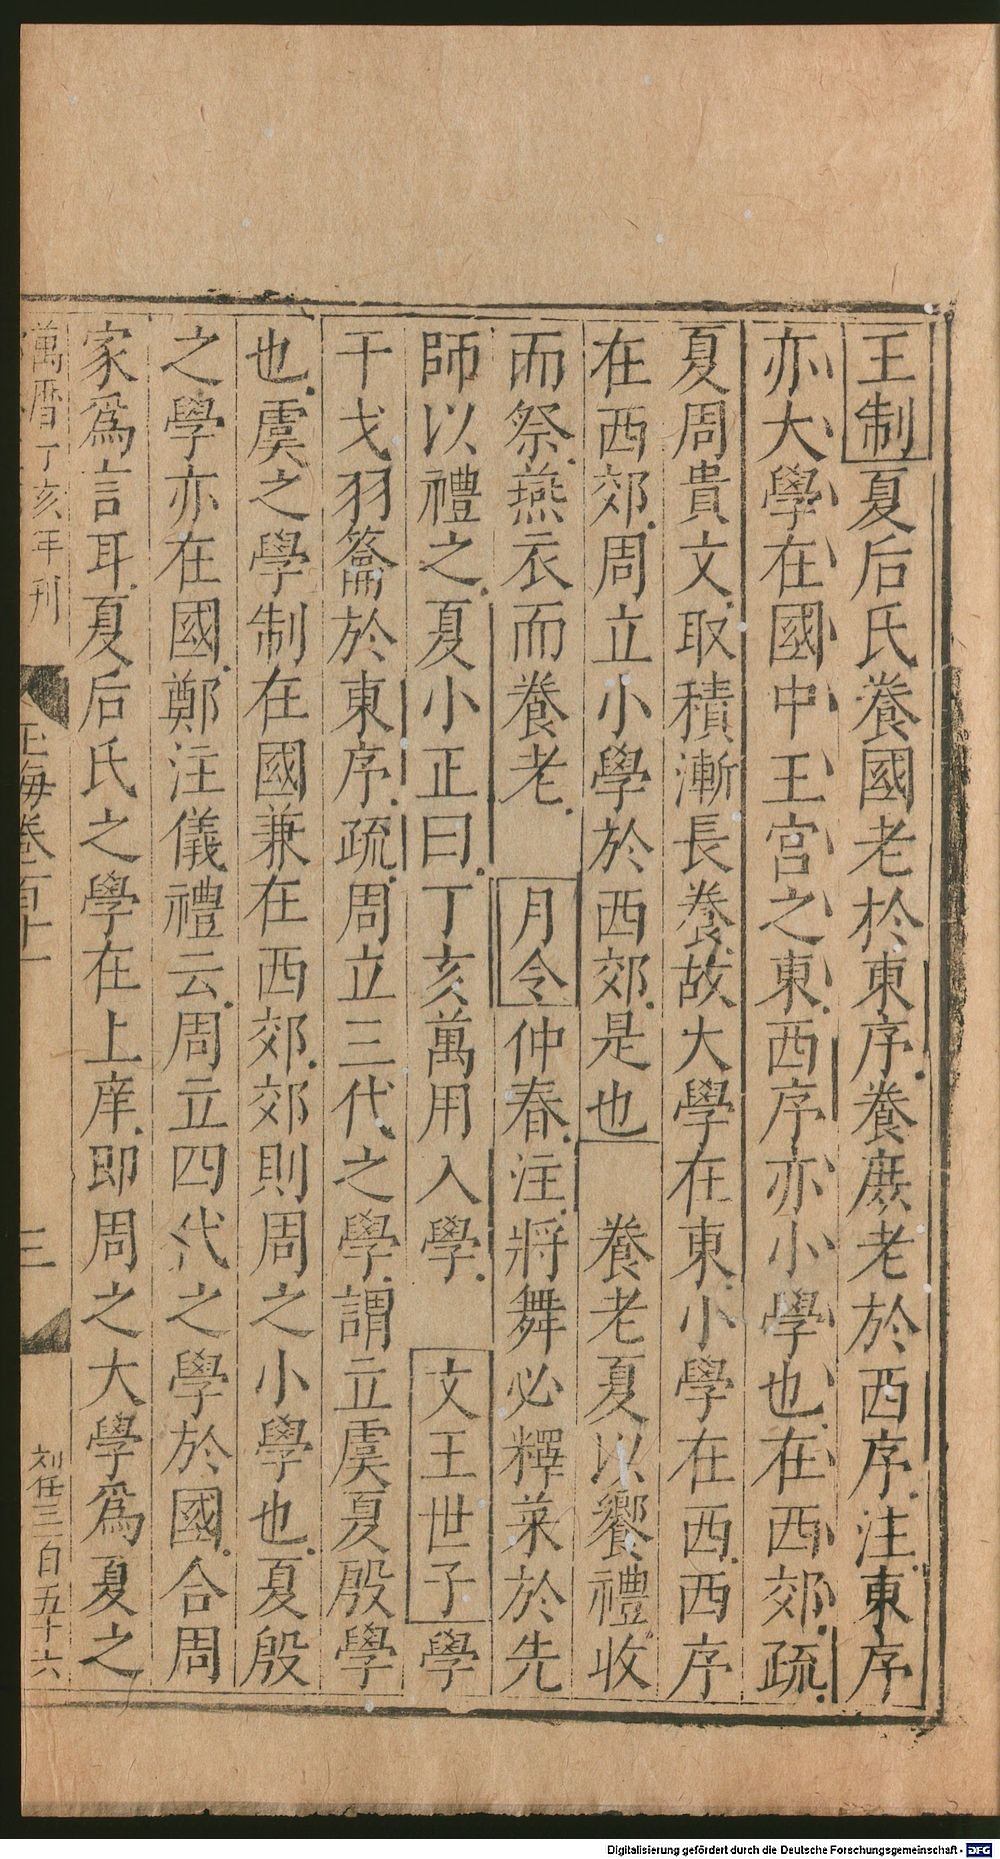 王制夏后氏養國老於東序養庶老於西序注東序
亦大學在國中王宮之東西序亦小學也在西郊疏
夏周貴文取積漸長養故大學在東小學在西西序
在西郊周立小學於西郊是也 養老夏以饗禮收
而祭燕衣而養老 月令仲春注將舞必釋菜於先
師以禮之夏小正曰丁亥萬用入學 文王世子學
干戈羽籥於東序疏周立三代之學謂立虞夏殷學
也虞之學制在國兼在西郊郊則周之小學也夏殷
之學亦在國鄭注儀禮云周立四代之學於國合周
家爲言耳夏后氏之學在上庠即周之大學爲夏之
萬曆丁亥年刊
玉海卷百十一
三
刘任三百五十六
Digitalisierung gefördert durch die Deutsche Forschungsgemeinschaft - DFG